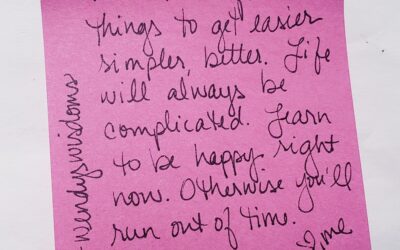 things to get easier
simpler, better. Life
will always be
complicated. Learn
to be happy right
now. Otherwise you'll
run out of time.
me
wendyswisdoms